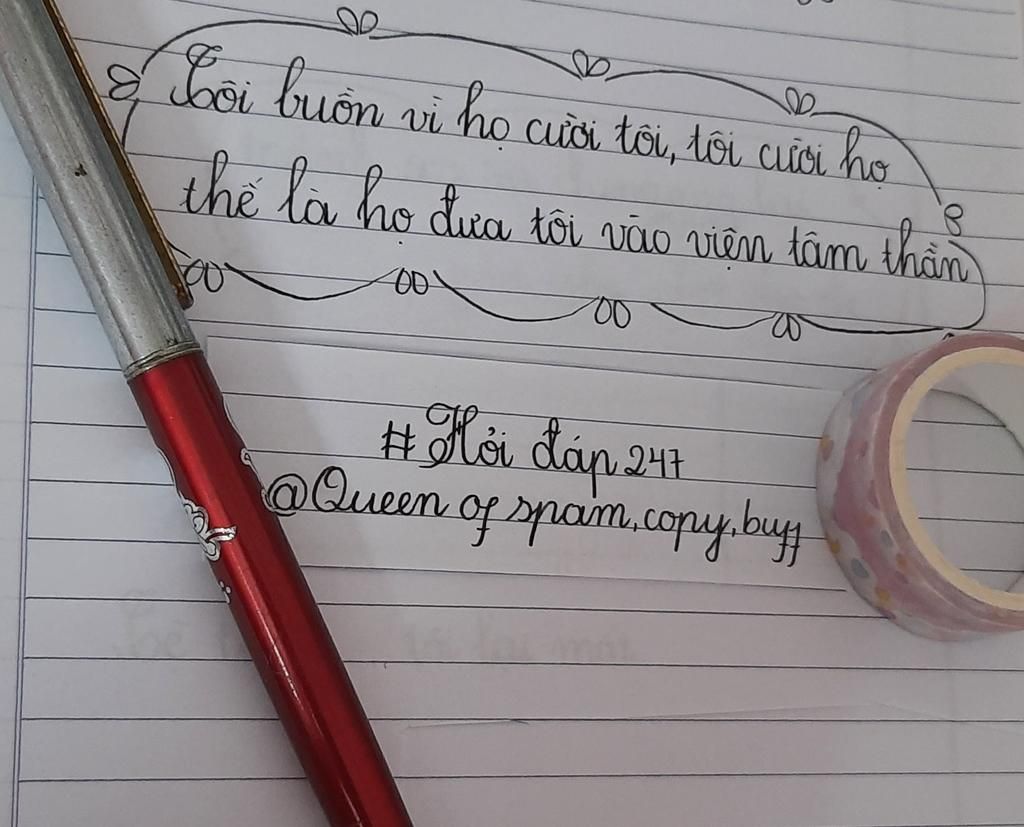 Tôi buồn vì họ cười tôi, tôi cười họ
thế là họ đưa tôi vào viện tâm thần
#Hỏi đáp 247
@Queen of spam, copy, buff